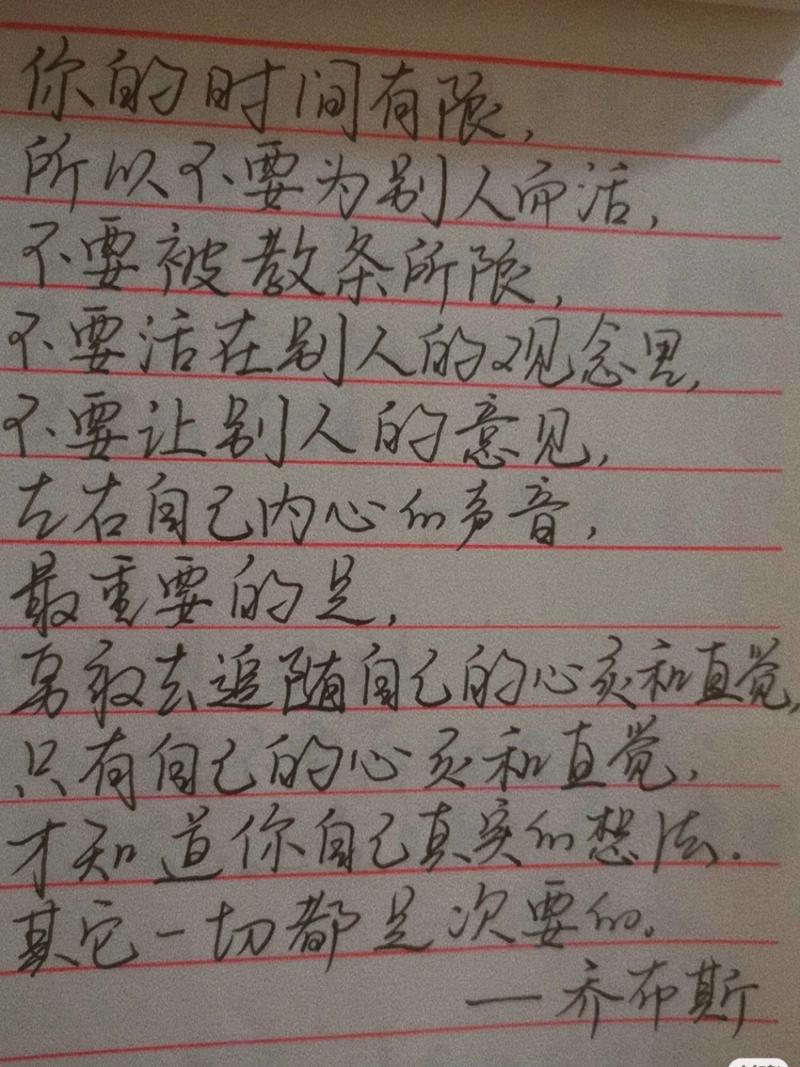 你的时间有限，
所以不要为别人而活，
不要被教条所限，
不要活在别人的观念里，
不要让别人的意见，
左右自己内心的声音，
最重要的是，
勇敢去追随自己的心灵和直觉，
只有自己的心灵和直觉，
才知道你自己真实的想法.
其它一切都是次要的。
—乔布斯